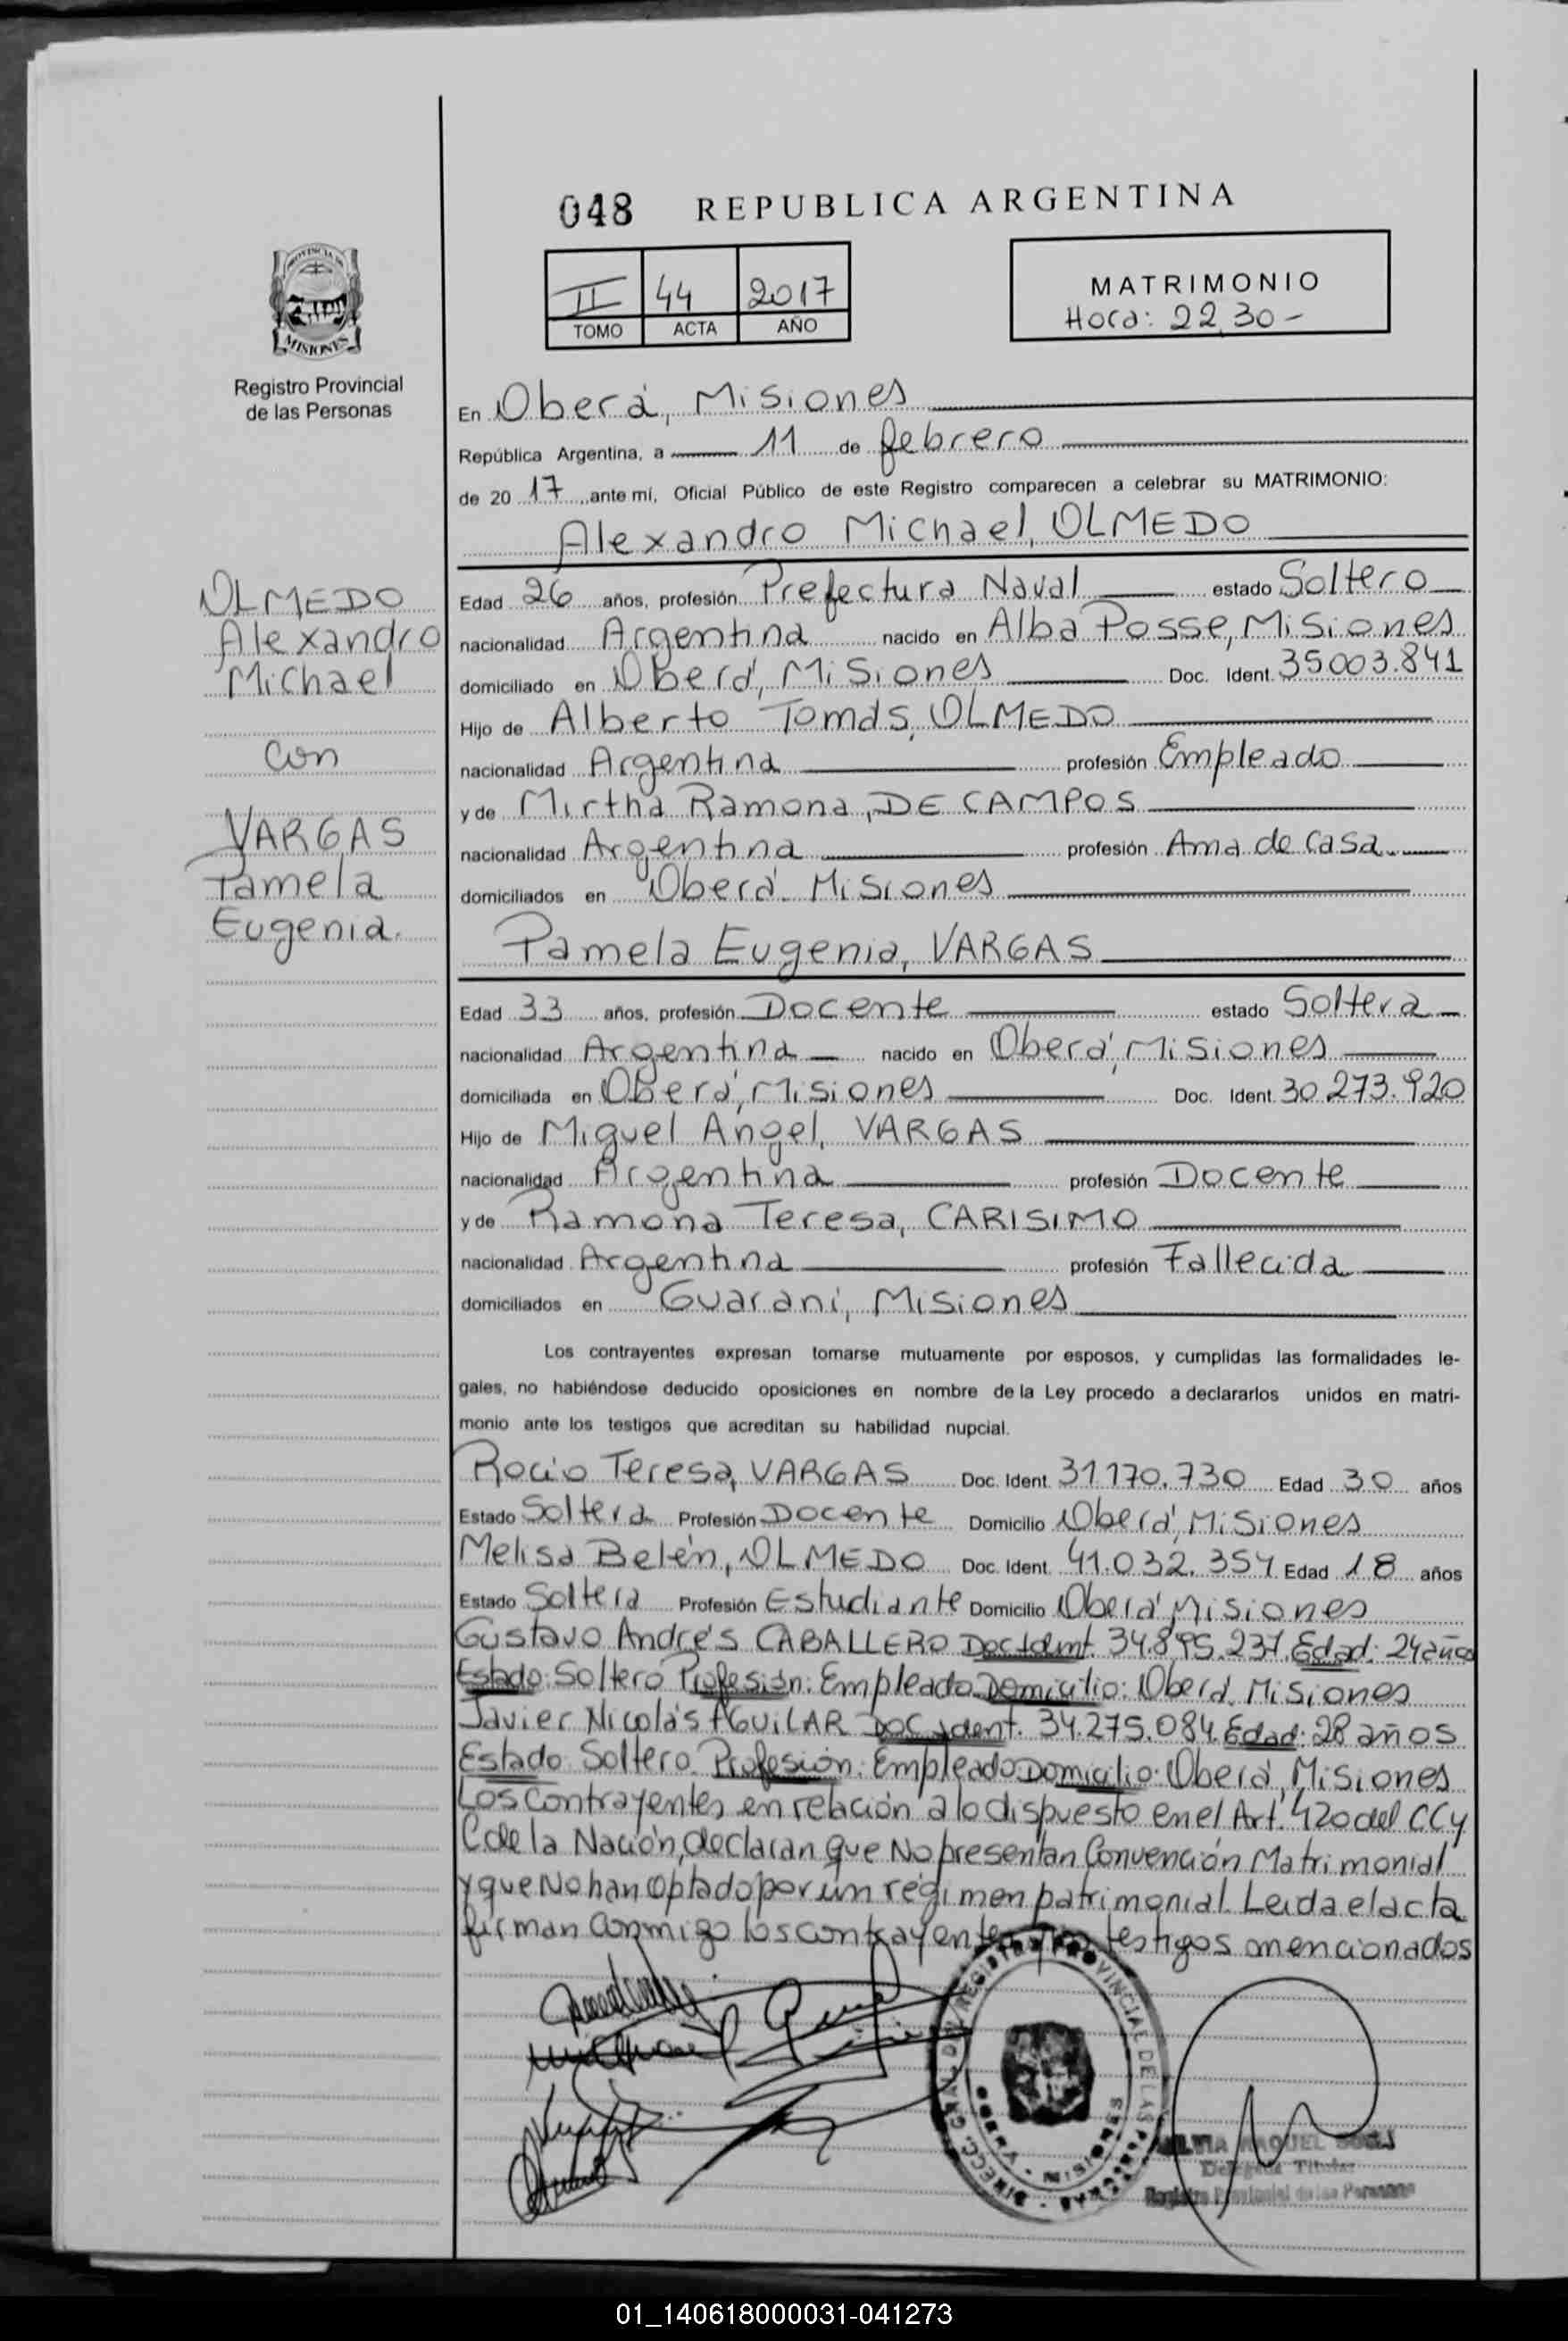 048 REPUBLICA ARGENTINA
II 44 2017
TOMO ACTA AÑO
MATRIMONIO
Hora: 22,30-
PROVINCIA DE
MISIONES
Registro Provincial
de las Personas
En Oberá, Misiones
República Argentina, a 11 de febrero
de 20 17 ,ante mí, Oficial Público de este Registro comparecen a celebrar su MATRIMONIO:
Alexandro Michael, OLMEDO
OLMEDO
Alexandro
Michael
con
VARGAS
Pamela
Eugenia.
Edad 26 años, profesión Prefectura Naval estado Soltero
nacionalidad Argentina nacido en Alba Posse, Misiones
domiciliado en Oberá, Misiones Doc. Ident. 35.003.841
Hijo de Alberto Tomás, OLMEDO
nacionalidad Argentina profesión Empleado
y de Mirtha Ramona, DE CAMPOS
nacionalidad Argentina profesión Ama de casa
domiciliados en Oberá. Misiones
Pamela Eugenia, VARGAS
Edad 33 años, profesión Docente estado Soltera
nacionalidad Argentina nacido en Oberá, Misiones
domiciliada en Oberá, Misiones Doc. Ident. 30.273.920
Hijo de Miguel Angel, VARGAS
nacionalidad Argentina profesión Docente
y de Ramona Teresa, CARISIMO
nacionalidad Argentina profesión Fallecida
domiciliados en Guaraní, Misiones
Los contrayentes expresan tomarse mutuamente por esposos, y cumplidas las formalidades le-
gales, no habiéndose deducido oposiciones en nombre de la Ley procedo a declararlos unidos en matri-
monio ante los testigos que acreditan su habilidad nupcial.
Rocio Teresa, VARGAS Doc. Ident. 31.170.730 Edad 30 años
Estado Soltera Profesión Docente Domicilio Oberá, Misiones
Melisa Belén, OLMEDO Doc. Ident. 41.032.354 Edad 18 años
Estado Soltera Profesión Estudiante Domicilio Oberá, Misiones
Gustavo Andrés CABALLERO Doc Ident. 34.895.237. Edad: 24 años
Estado: Soltero Profesión: Empleado Domicilio: Oberá. Misiones
Javier Nicolás AGUILAR Doc ident. 34.275.084. Edad: 28 años
Estado: Soltero. Profesión: Empleado Domicilio: Oberá, Misiones
Los contrayentes en relación a lo dispuesto en el Art. 420 del CCy
C de la Nación, declaran que No presentan Convención Matrimonial
y que No han optado por un régimen patrimonial. Leida el acta
firman conmigo los contrayentes testigos mencionados
DIRECC. GRAL. DEL REGISTRO PROVINCIAL DE LAS PERSONAS
OBERA - MISIONES
RAQUEL
Delegada Titular
Registro Provincial de las Personas
01_140618000031-041273